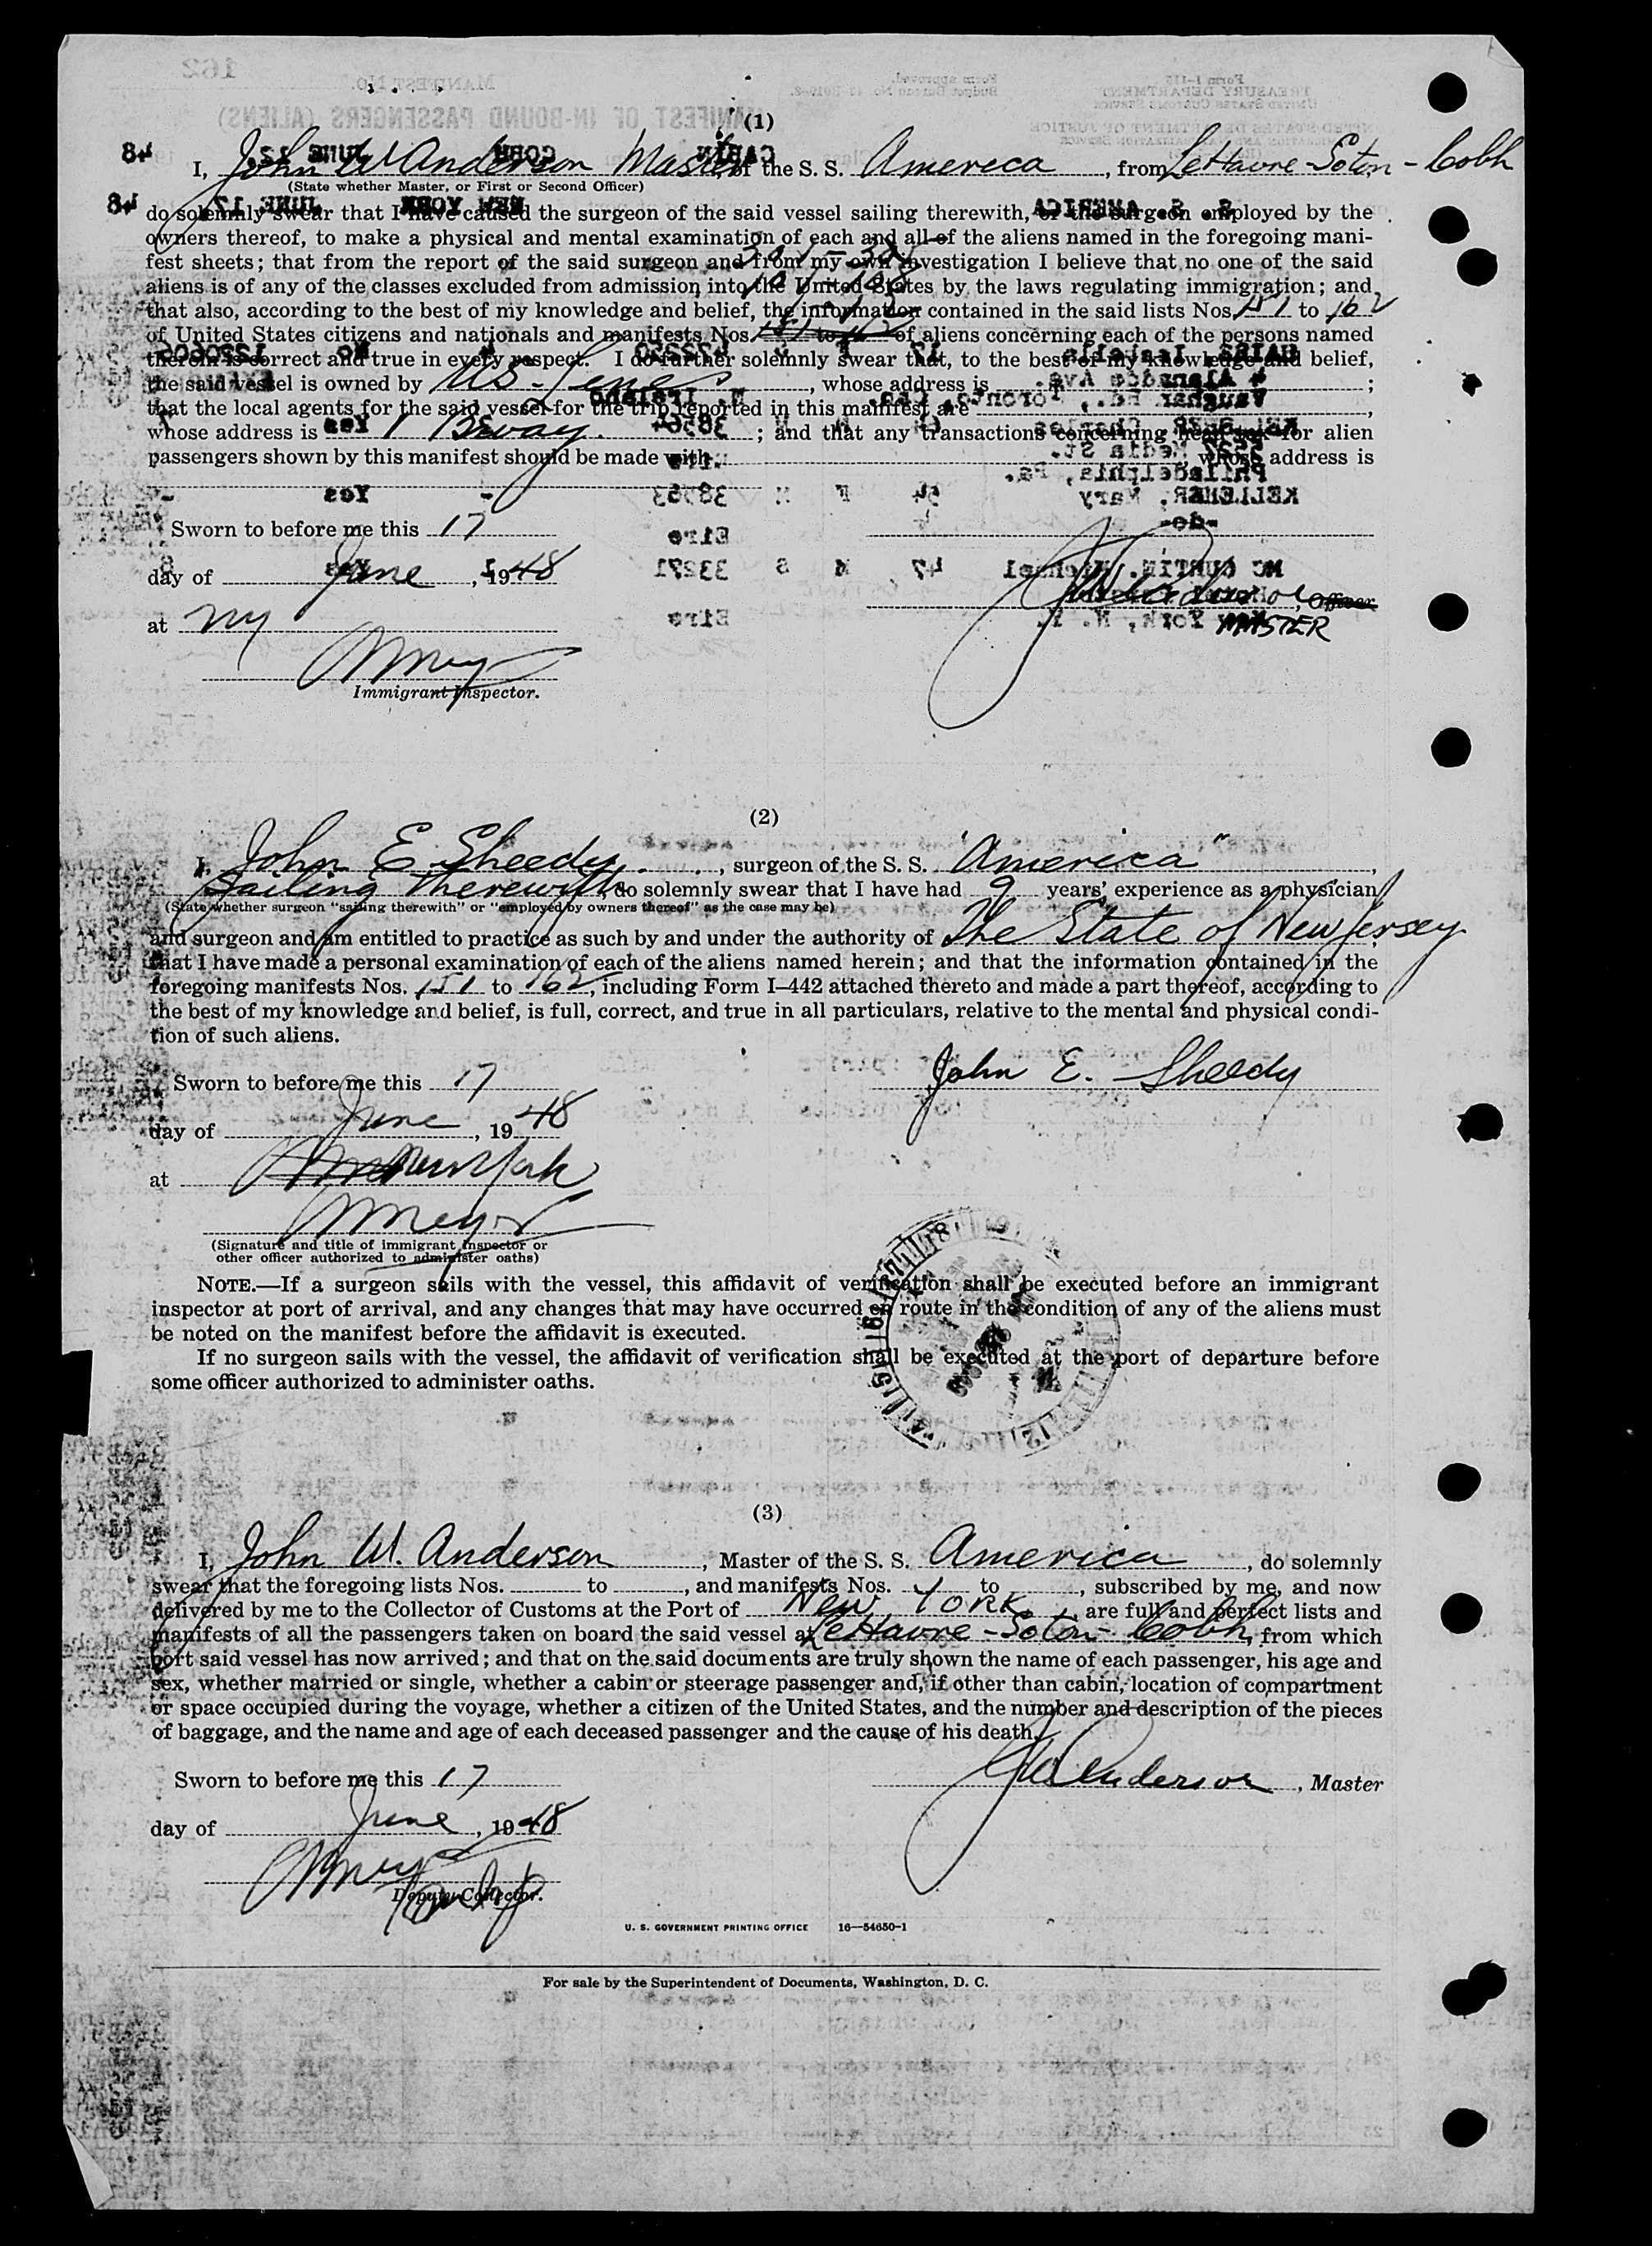 162
MANIFEST NO.
Form approved.
Form I-415
TREASURY DEPARTMENT
UNITED STATES CUSTOMS SERVICE
MANIFEST OF IN-BOUND PASSENGERS (ALIENS)
UNITED STATES DEPARTMENT OF JUSTICE
(1)
CABIN COBH JUNE 12, 48
I, John W Anderson Master, of the S. S. America, from LeHavre-Soton-Cobh
(State whether Master, or First or Second Officer)
S. S. AMERICA NEW YORK JUNE 17 48
do solemnly swear that I have caused the surgeon of the said vessel sailing therewith, or the surgeon employed by the
owners thereof, to make a physical and mental examination of each and all of the aliens named in the foregoing mani-
fest sheets; that from the report of the said surgeon and from my own investigation I believe that no one of the said
aliens is of any of the classes excluded from admission into the United States by the laws regulating immigration; and
that also, according to the best of my knowledge and belief, the information contained in the said lists Nos. 151 to 162
of United States citizens and nationals and manifests Nos. 151 to 162 of aliens concerning each of the persons named
therein is correct and true in every respect. I do further solemnly swear that, to the best of my knowledge and belief,
the said vessel is owned by US-Lines, whose address is ;
that the local agents for the said vessel for the trip reported in this manifest are ,
whose address is 1 Bway. ; and that any transactions concerning head tax for alien
passengers shown by this manifest should be made with whose address is
Philadelphia, Pa.
KELLEHER, Mary 54 F M 38763 - Yes -
-do-
Sworn to before me this 17
Eire
MC CURTIN, Michael 47 M S 33271 1 Yes
day of June, 1948
Officer
MASTER
New York, N. Y. Eire
at NY
Immigrant Inspector.
(2)
I, John E Sheedy, surgeon of the S. S. "America",
sailing therewith, do solemnly swear that I have had 9 years' experience as a physician
(State whether surgeon "sailing therewith" or "employed by owners thereof" as the case may be)
and surgeon and am entitled to practice as such by and under the authority of The State of New Jersey,
that I have made a personal examination of each of the aliens named herein; and that the information contained in the
foregoing manifests Nos. 151 to 162, including Form I-442 attached thereto and made a part thereof, according to
the best of my knowledge and belief, is full, correct, and true in all particulars, relative to the mental and physical condi-
tion of such aliens.
John E. Sheedy
Sworn to before me this 17
day of June, 1948
at New York
(Signature and title of immigrant inspector or
other officer authorized to administer oaths)
NOTE.—If a surgeon sails with the vessel, this affidavit of verification shall be executed before an immigrant
inspector at port of arrival, and any changes that may have occurred en route in the condition of any of the aliens must
be noted on the manifest before the affidavit is executed.
If no surgeon sails with the vessel, the affidavit of verification shall be executed at the port of departure before
some officer authorized to administer oaths.
(3)
I, John W. Anderson, Master of the S. S. America, do solemnly
swear that the foregoing lists Nos. to , and manifests Nos. to , subscribed by me, and now
delivered by me to the Collector of Customs at the Port of New York, are full and perfect lists and
manifests of all the passengers taken on board the said vessel at LeHavre-Soton-Cobh, from which
port said vessel has now arrived; and that on the said documents are truly shown the name of each passenger, his age and
sex, whether married or single, whether a cabin or steerage passenger and, if other than cabin, location of compartment
or space occupied during the voyage, whether a citizen of the United States, and the number and description of the pieces
of baggage, and the name and age of each deceased passenger and the cause of his death.
Sworn to before me this 17
JW Anderson, Master
day of June, 1948
Deputy Collector.
U. S. GOVERNMENT PRINTING OFFICE 16—54650-1
For sale by the Superintendent of Documents, Washington, D. C.